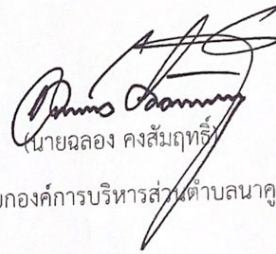 (นายฉลอง คงสัมฤทธิ์)
ยกองค์การบริหารส่วนตำบลนาคู